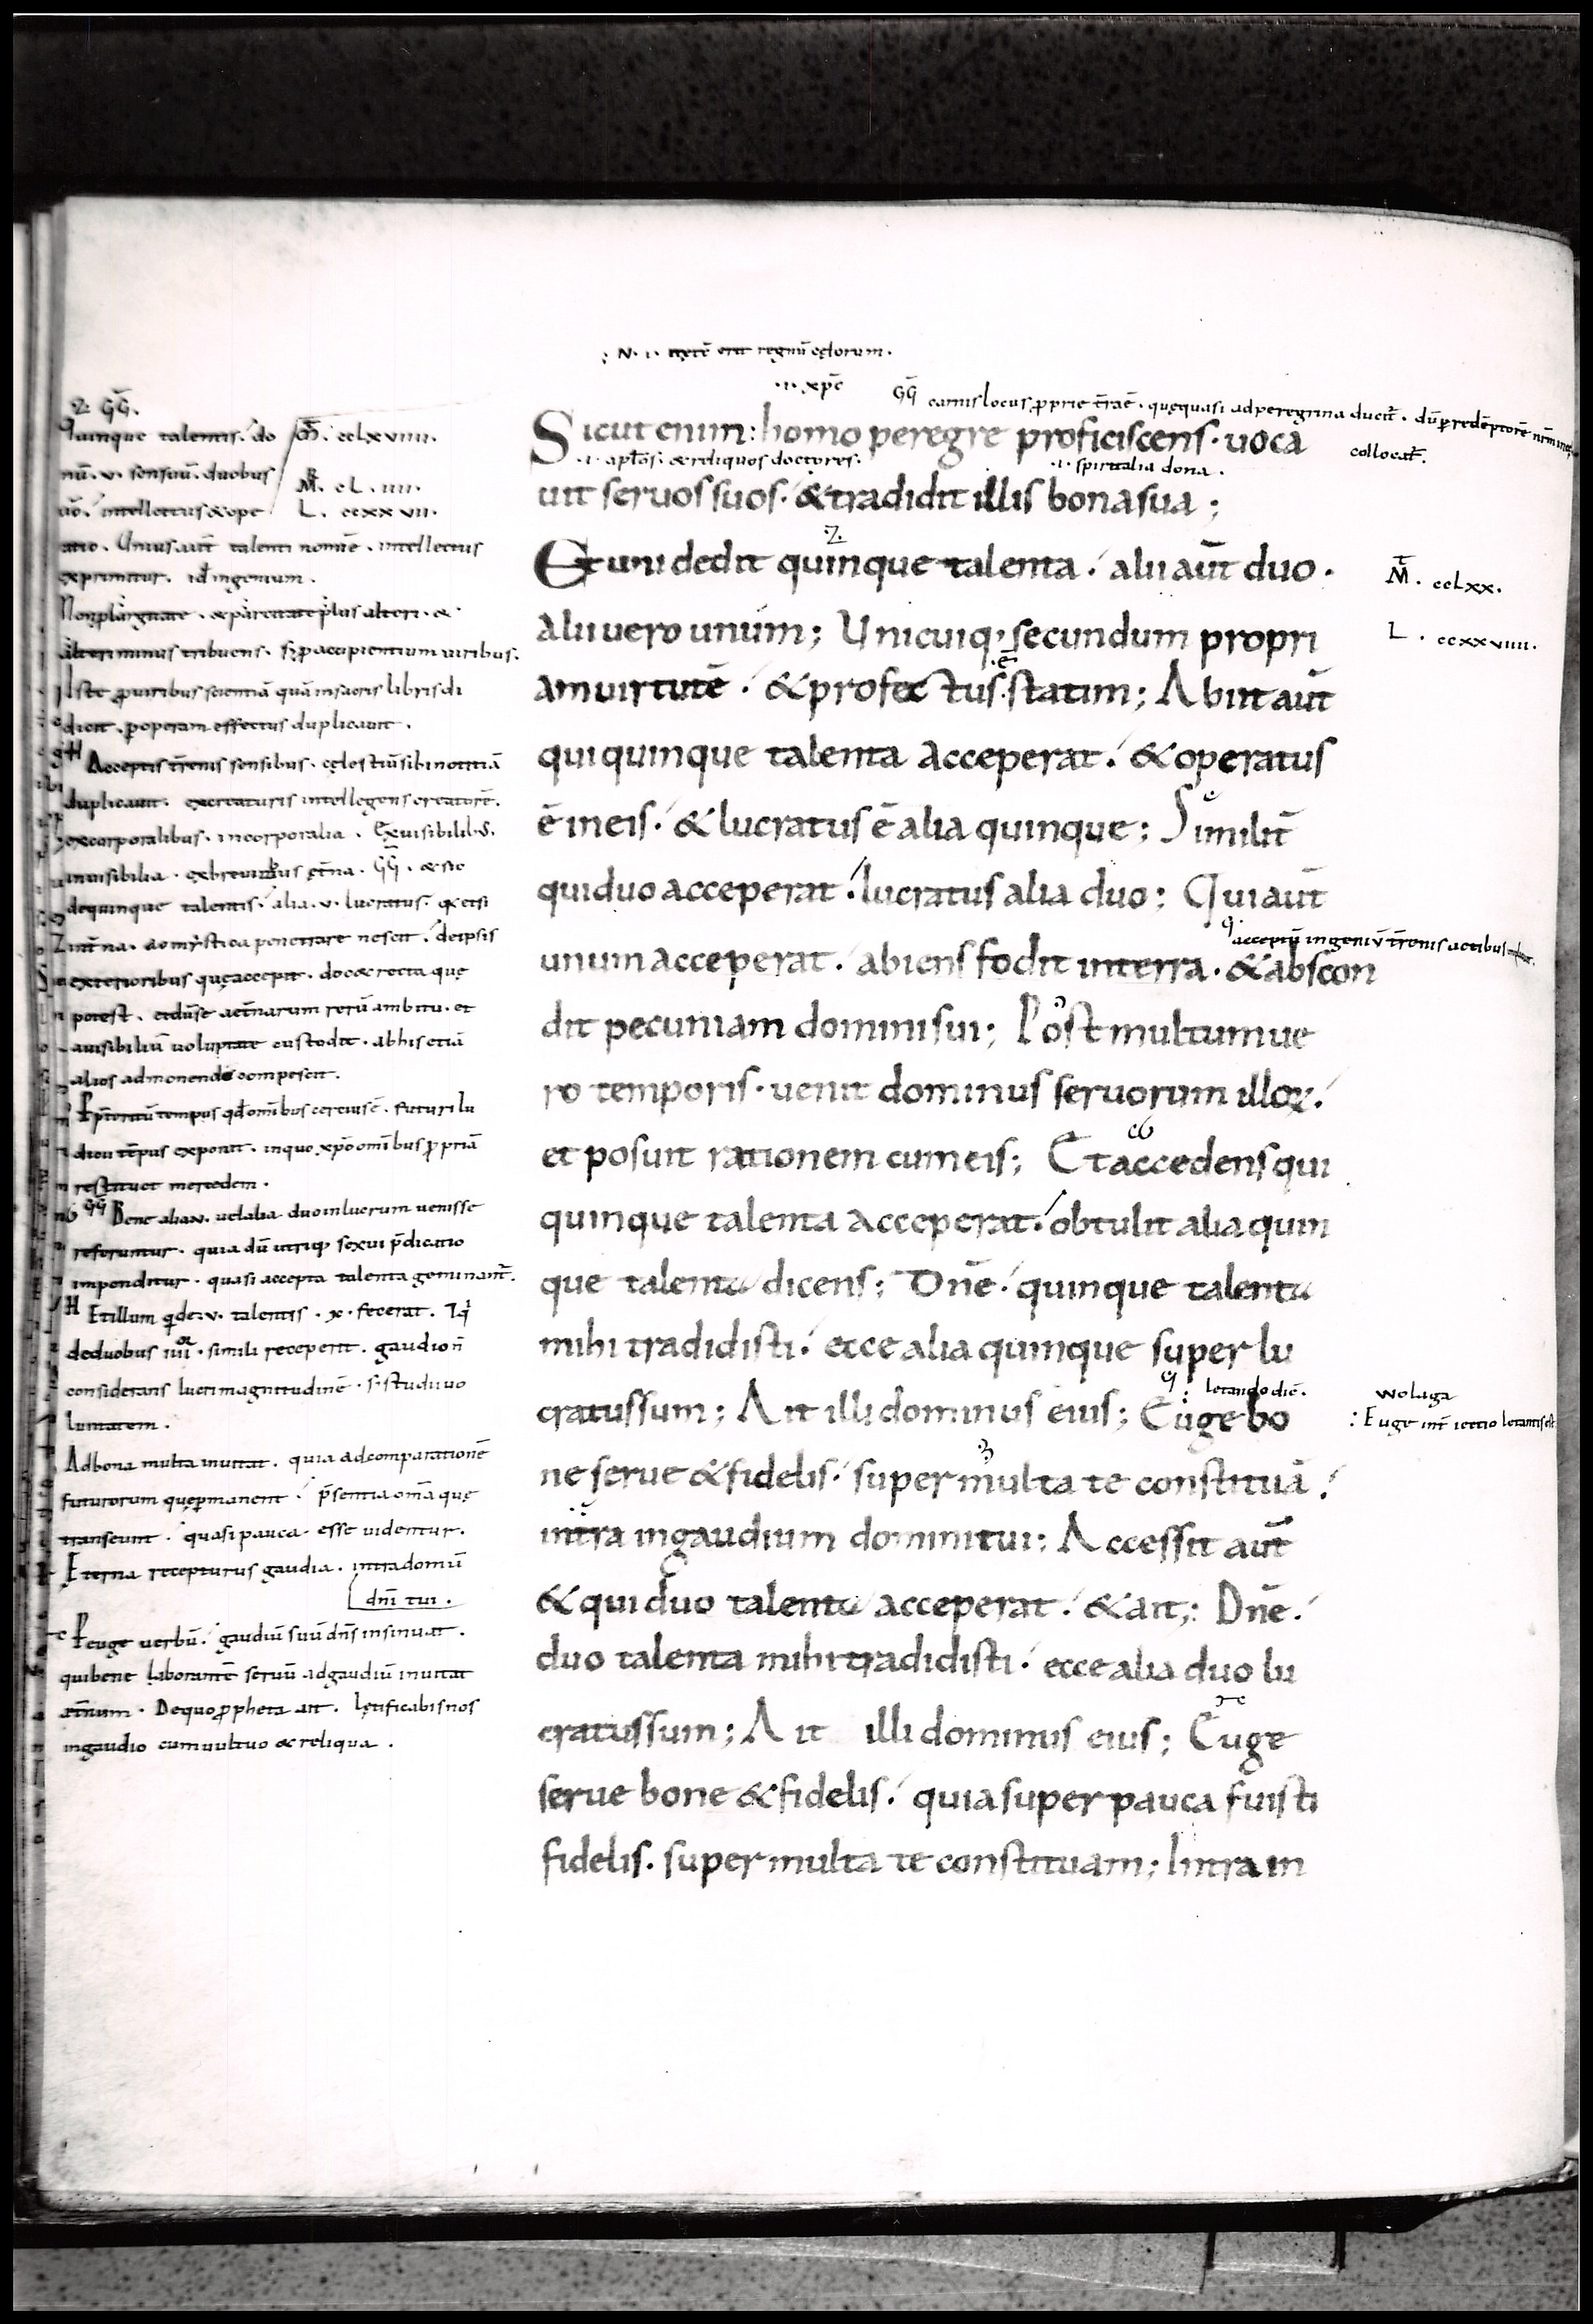 : N. i. itē erit regnū cęlorum.
.i. xp̄c
GḠ carnis locus p̱prie t̄ra ē. quę quasi ad peregrina ducit̄. dū p̱ redēptorē nr̄m in cęlo
collocat̄.
Sicut enim: homo peregre proficiscens. uoca
.i. aptōs. & reliquos doctores. .i. spiritalia dona.
uit seruos suos. & tradidit illis bona sua;
Et uni dedit quinque talenta. alii aūt duo.
alii uero unum; Unicuiq; secundum propri
am uirtutē. & profectus ē statim; Abiit aūt
qui quinque talenta acceperat. & operatus
ē in eis. & lucratus ē alia quinque; Similit̄
qui duo acceperat. lucratus alia duo; Qui aūt
acceptū ingeniū t̄renis actibus
unum acceperat. abiens fodit in terra. & abscon
dit pecuniam domini sui; Post multum ue
ro temporis. uenit dominus seruorum illoꝝ.
et posuit rationem cum eis; Et accedens qui
quinque talenta acceperat. obtulit alia quin
que talenta dicens; Dn̄e. quinque talenta
mihi tradidisti. ecce alia quinque super lu
: letando dic̄.
cratus sum; Ait illi dominus eius; Euge bo
ne serue & fidelis. super multa te constituā.
intra in gaudium domini tui; Accessit aūt
& qui duo talenta acceperat. & ait; Dn̄e.
duo talenta mihi tradidisti. ecce alia duo lu
cratus sum; Ait illi dominus eius; Euge
serue bone & fidelis. quia super pauca fuisti
fidelis. super multa te constituam; Intra in
M̄. cclxx.
L. ccxxviiii.
wolaga
: Euge int̄ iectio letantis est
Z GḠ.
Quinque talentis. do
nū. v. sensuū. duobus
aū. intellectus & ope
ratio. Unius aūt talenti nomine. intellectus
exprimitur. id ingenium.
M̄. cclxviiii.
M̄. cl. iiii.
L. ccxxvii.
Non p̱ largitate. & parcitate plus alteri. &
alteri minus tribuens. s; p̱ accipientium uiribus.
Iste p̱ uiribus scientiā quā in sacris libris di
dicit. p̱ operam effectus duplicauit.
H Acceptis t̄renis sensibus. cęlestiū sibi notitiā
duplicauit. ex creaturis intellegens creatorē.
ex corporalibus. incorporalia. Ex uisibilib;.
inuisibilia. ex breuibus ęt̄na. GḠ. & sic
de quinque talentis. alia. v. lucratus. q̨ etsi
int̄na. ac mystica penetrare nescit. de ipsis
exterioribus quę accepit. docet recta quę
potest. et dū se
alios admonendo compescit.
p̄teritū tempus qd̄ omībus certius ē. futuri iu
dicii tēpus exponit. in quo xp̄c omībus p̱priā
restituet mercedem.
GḠ Bene alia. v. uel alia duo in lucrum uenisse
referuntur. quia dū utriq; sexui p̄dicatio
impenditur. quasi accepta talenta geminant̄.
H Et illum q̨ de. v. talentis. x. fecerat.
de duobus iiii. simili receperit. gaudio n̄
considerans lucri magnitudinē. s; studii uo
luntatem.
Ad bona multa inuitat. quia ad comparationē
futurorum quę p̱manent. p̄sentia omīa quę
transeunt. quasi pauca esse uidentur.
Eterna recepturus gaudia. intra domū
dn̄i tui.
P̱ euge uerbū. gaudiū suū dn̄s insinuat.
qui bene laborantē seruū ad gaudiū inuitat
ęt̄num. De quo p̱pheta ait. Lętificabis nos
in gaudio cum uultu tuo & reliqua.